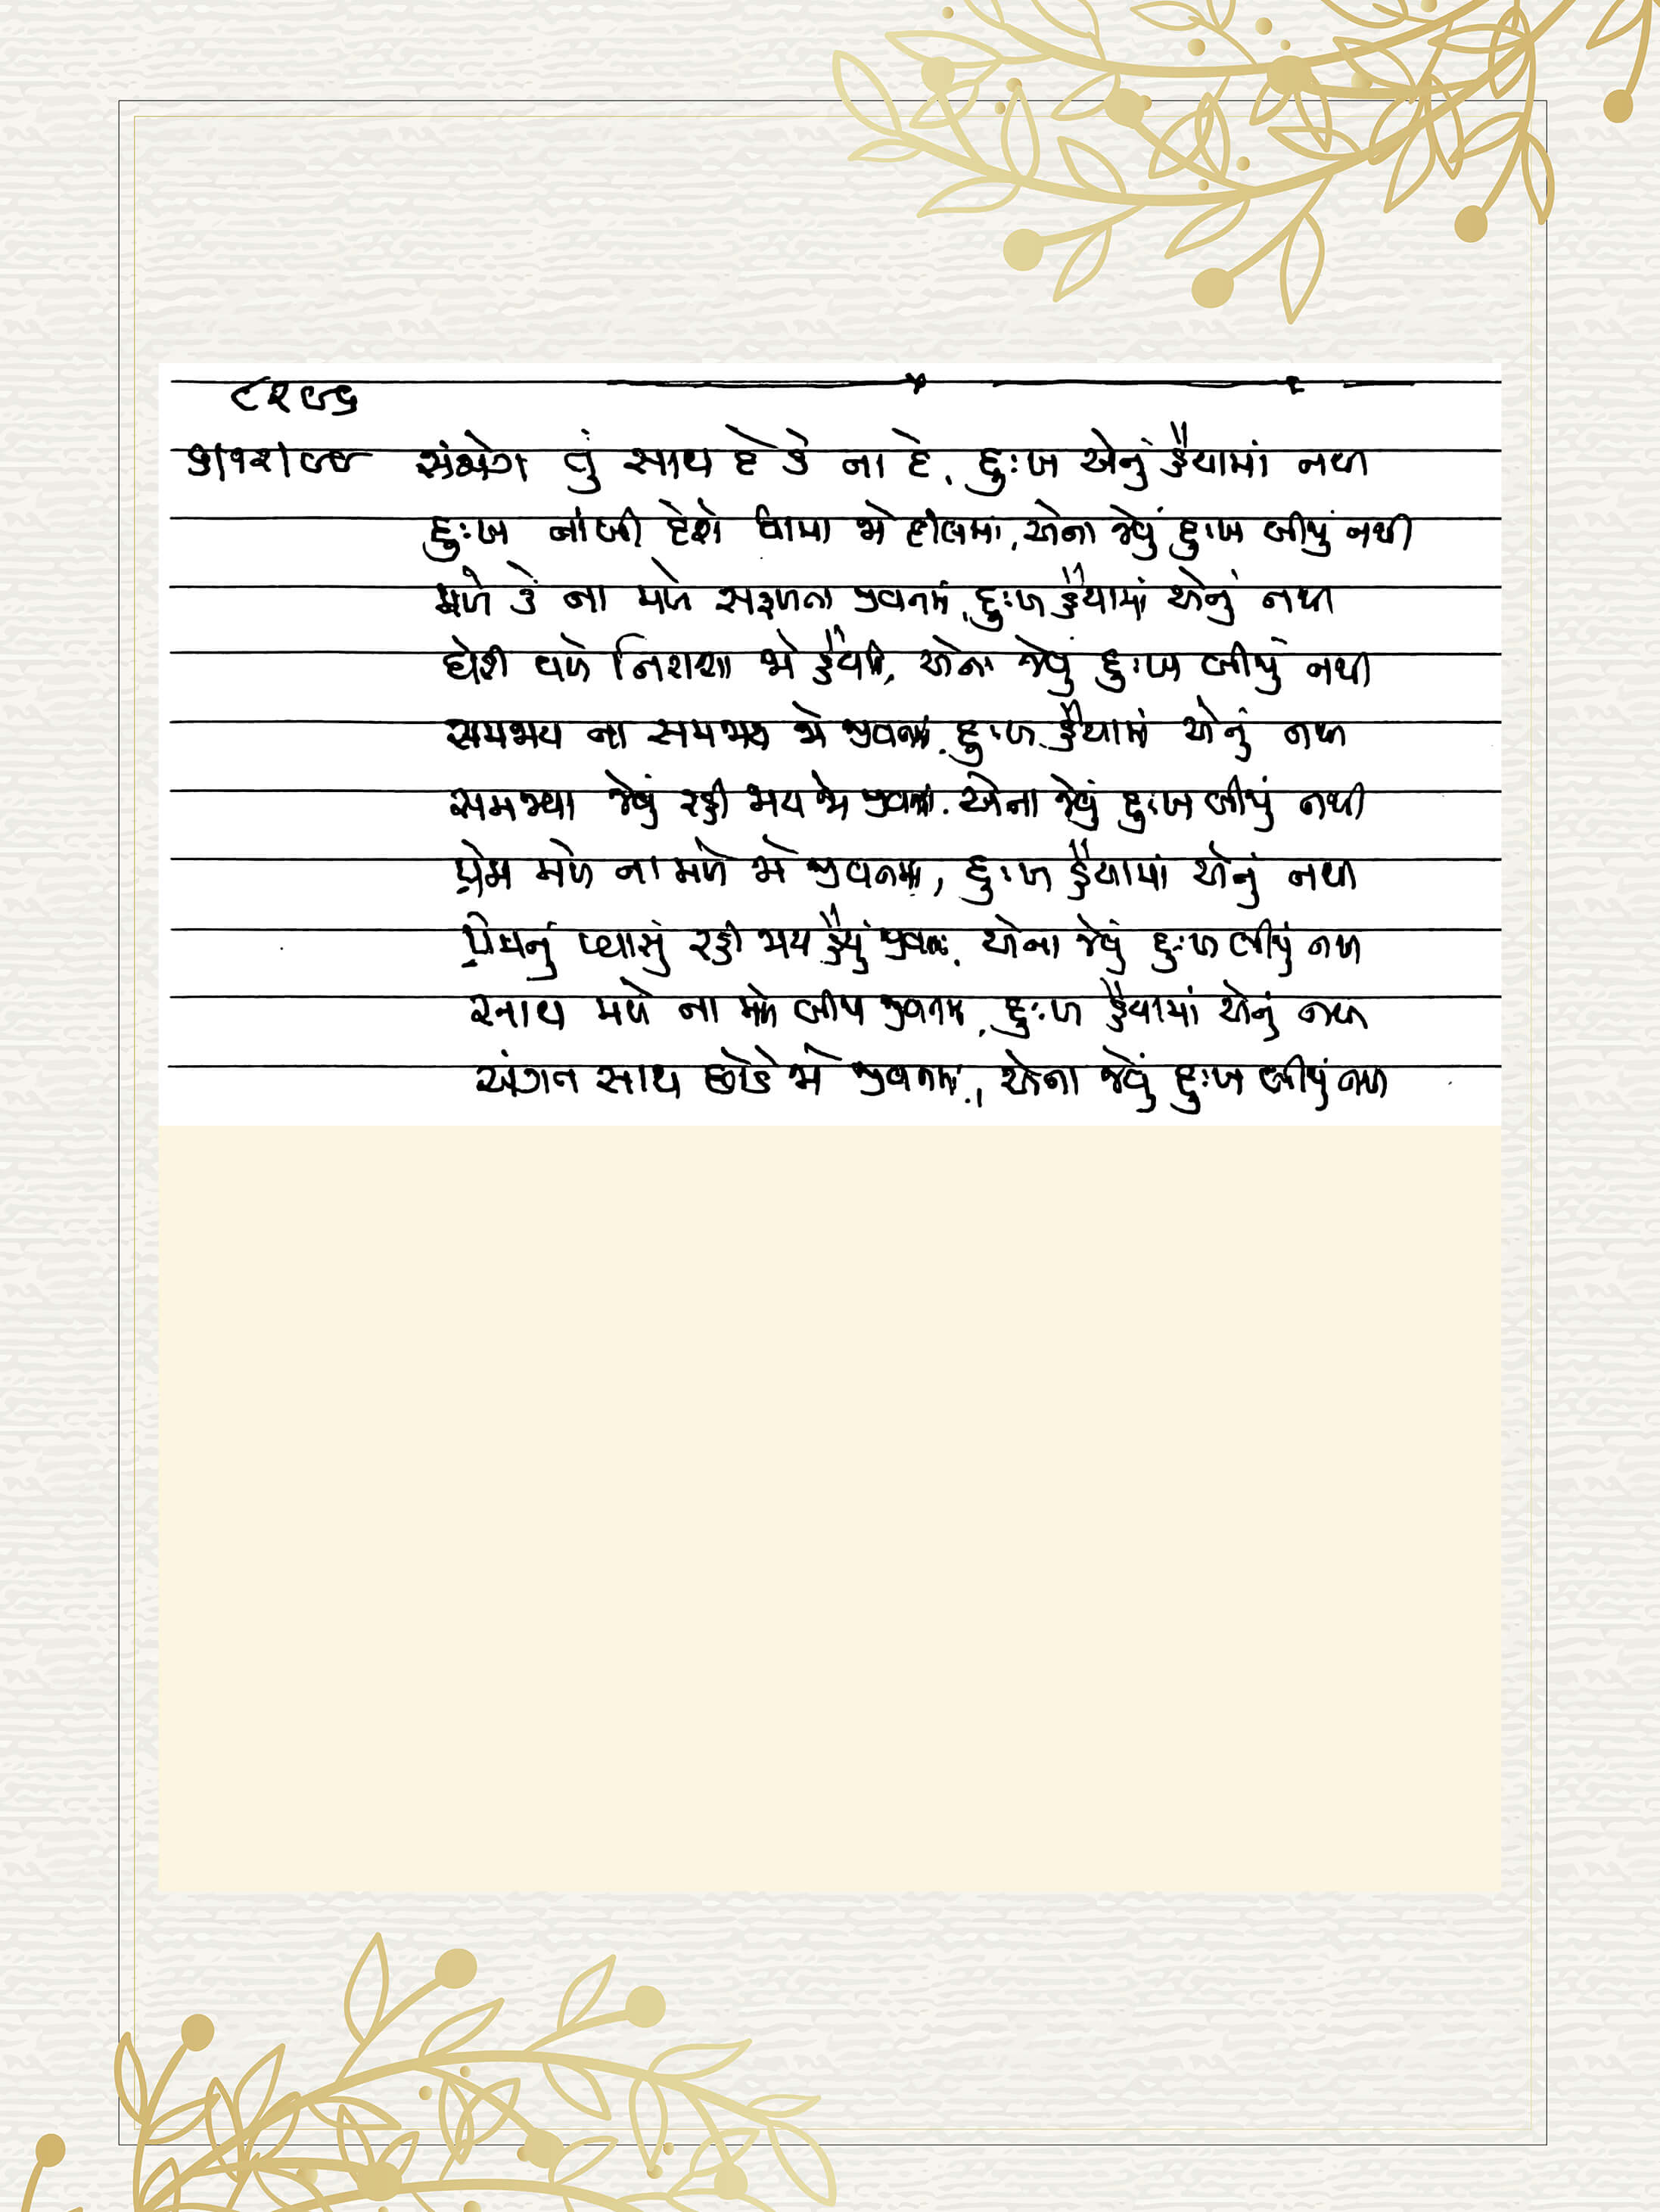 ૮૨૭૬
સંજોગ તું સાથ દે કે ના દે, દુઃખ એનું હૈયામાં નથી
દુઃખ નાંખી દેશે ધામા જો દીલમાં, એના જેવું દુઃખ બીજું નથી
મળે કે ના મળે સફળતા જીવનમાં, દુઃખ હૈયામાં એનું નથી
ઘેરી વળે નિરાશા જો હૈયાને, એના જેવું દુઃખ બીજું નથી
સમજાય ના સમજાય જો જીવનમાં, દુઃખ હૈયામાં એનું નથી
સમજ્યા જેવું રહી જાય જો જીવનમાં, એના જેવું દુઃખ બીજું નથી
પ્રેમ મળે ના મળે જો જીવનમાં, દુઃખ હૈયામાં એનું નથી
પ્રેમનું પ્યાસું રહી જાય હૈયું જીવનમાં, એના જેવું દુઃખ બીજું નથી
સાથ મળે ના મળે બીજા જીવનમાં, દુઃખ હૈયામાં એનું નથી
અંગત સાથ છોડે જો જીવનમાં, એના જેવું દુઃખ બીજું નથી